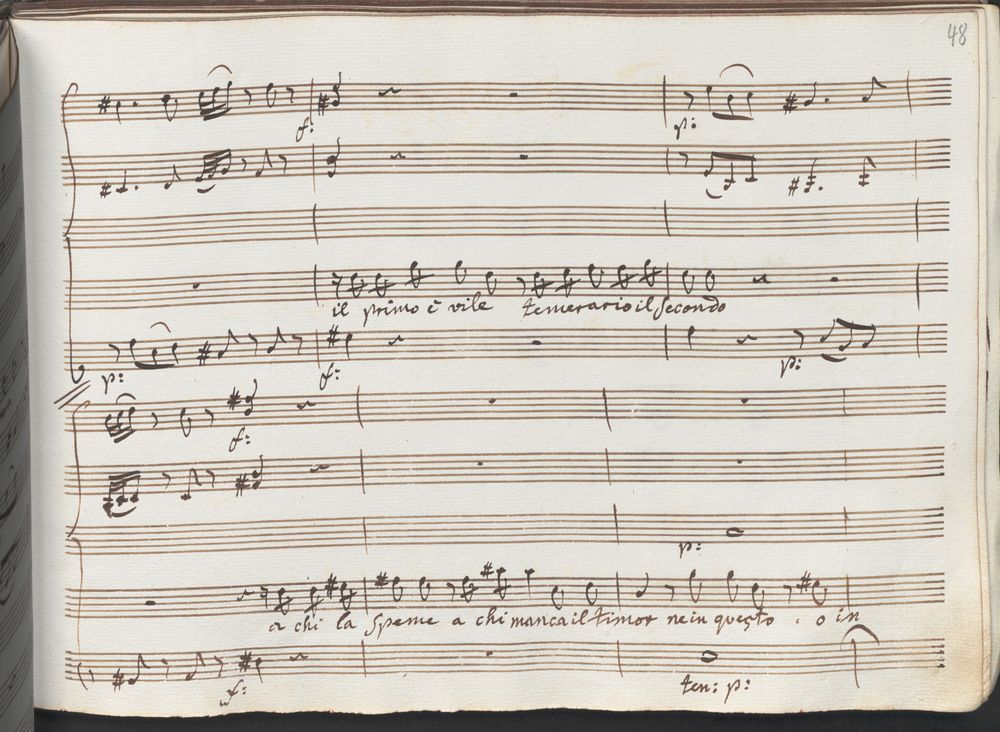 48
f: p:
il primo è vile temerario il secondo
p: f: p:
f:
p:
a chi la speme a chi manca il timor ne in questo . o in
f: ten: p: